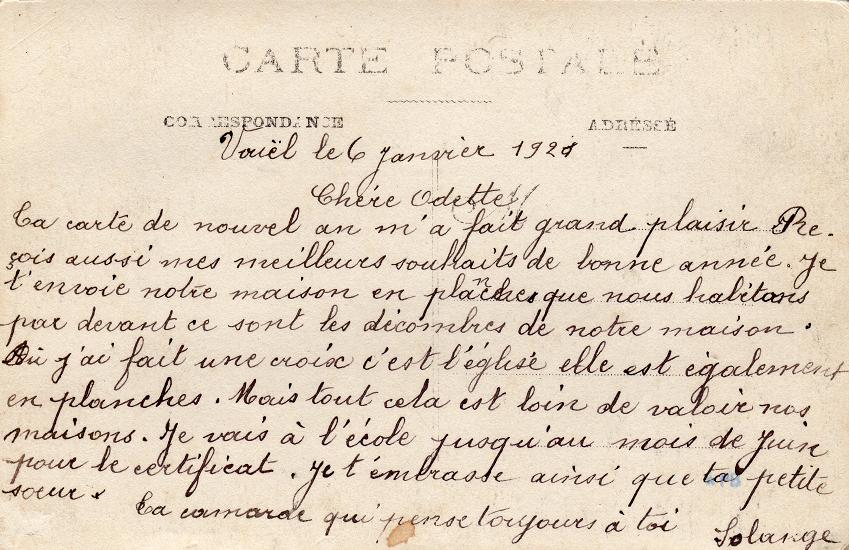 CARTE POSTALE
CORRESPONDANCE
ADRESSE
Vouël le 6 janvier 1921
Chère Odette
Ta carte de nouvel an m'a fait grand plaisir Re-
çois aussi mes meilleurs souhaits de bonne année. Je
t'envoie notre maison en planches que nous habitons
par devant ce sont les décombres de notre maison.
Où j'ai fait une croix c'est l'église elle est également
en planches. Mais tout cela est loin de valoir nos
maisons. Je vais à l'école jusqu'au mois de Juin
pour le certificat. Je t'embrasse ainsi que ta petite
soeur.
Ta camarde qui pense toujours à toi
Solange